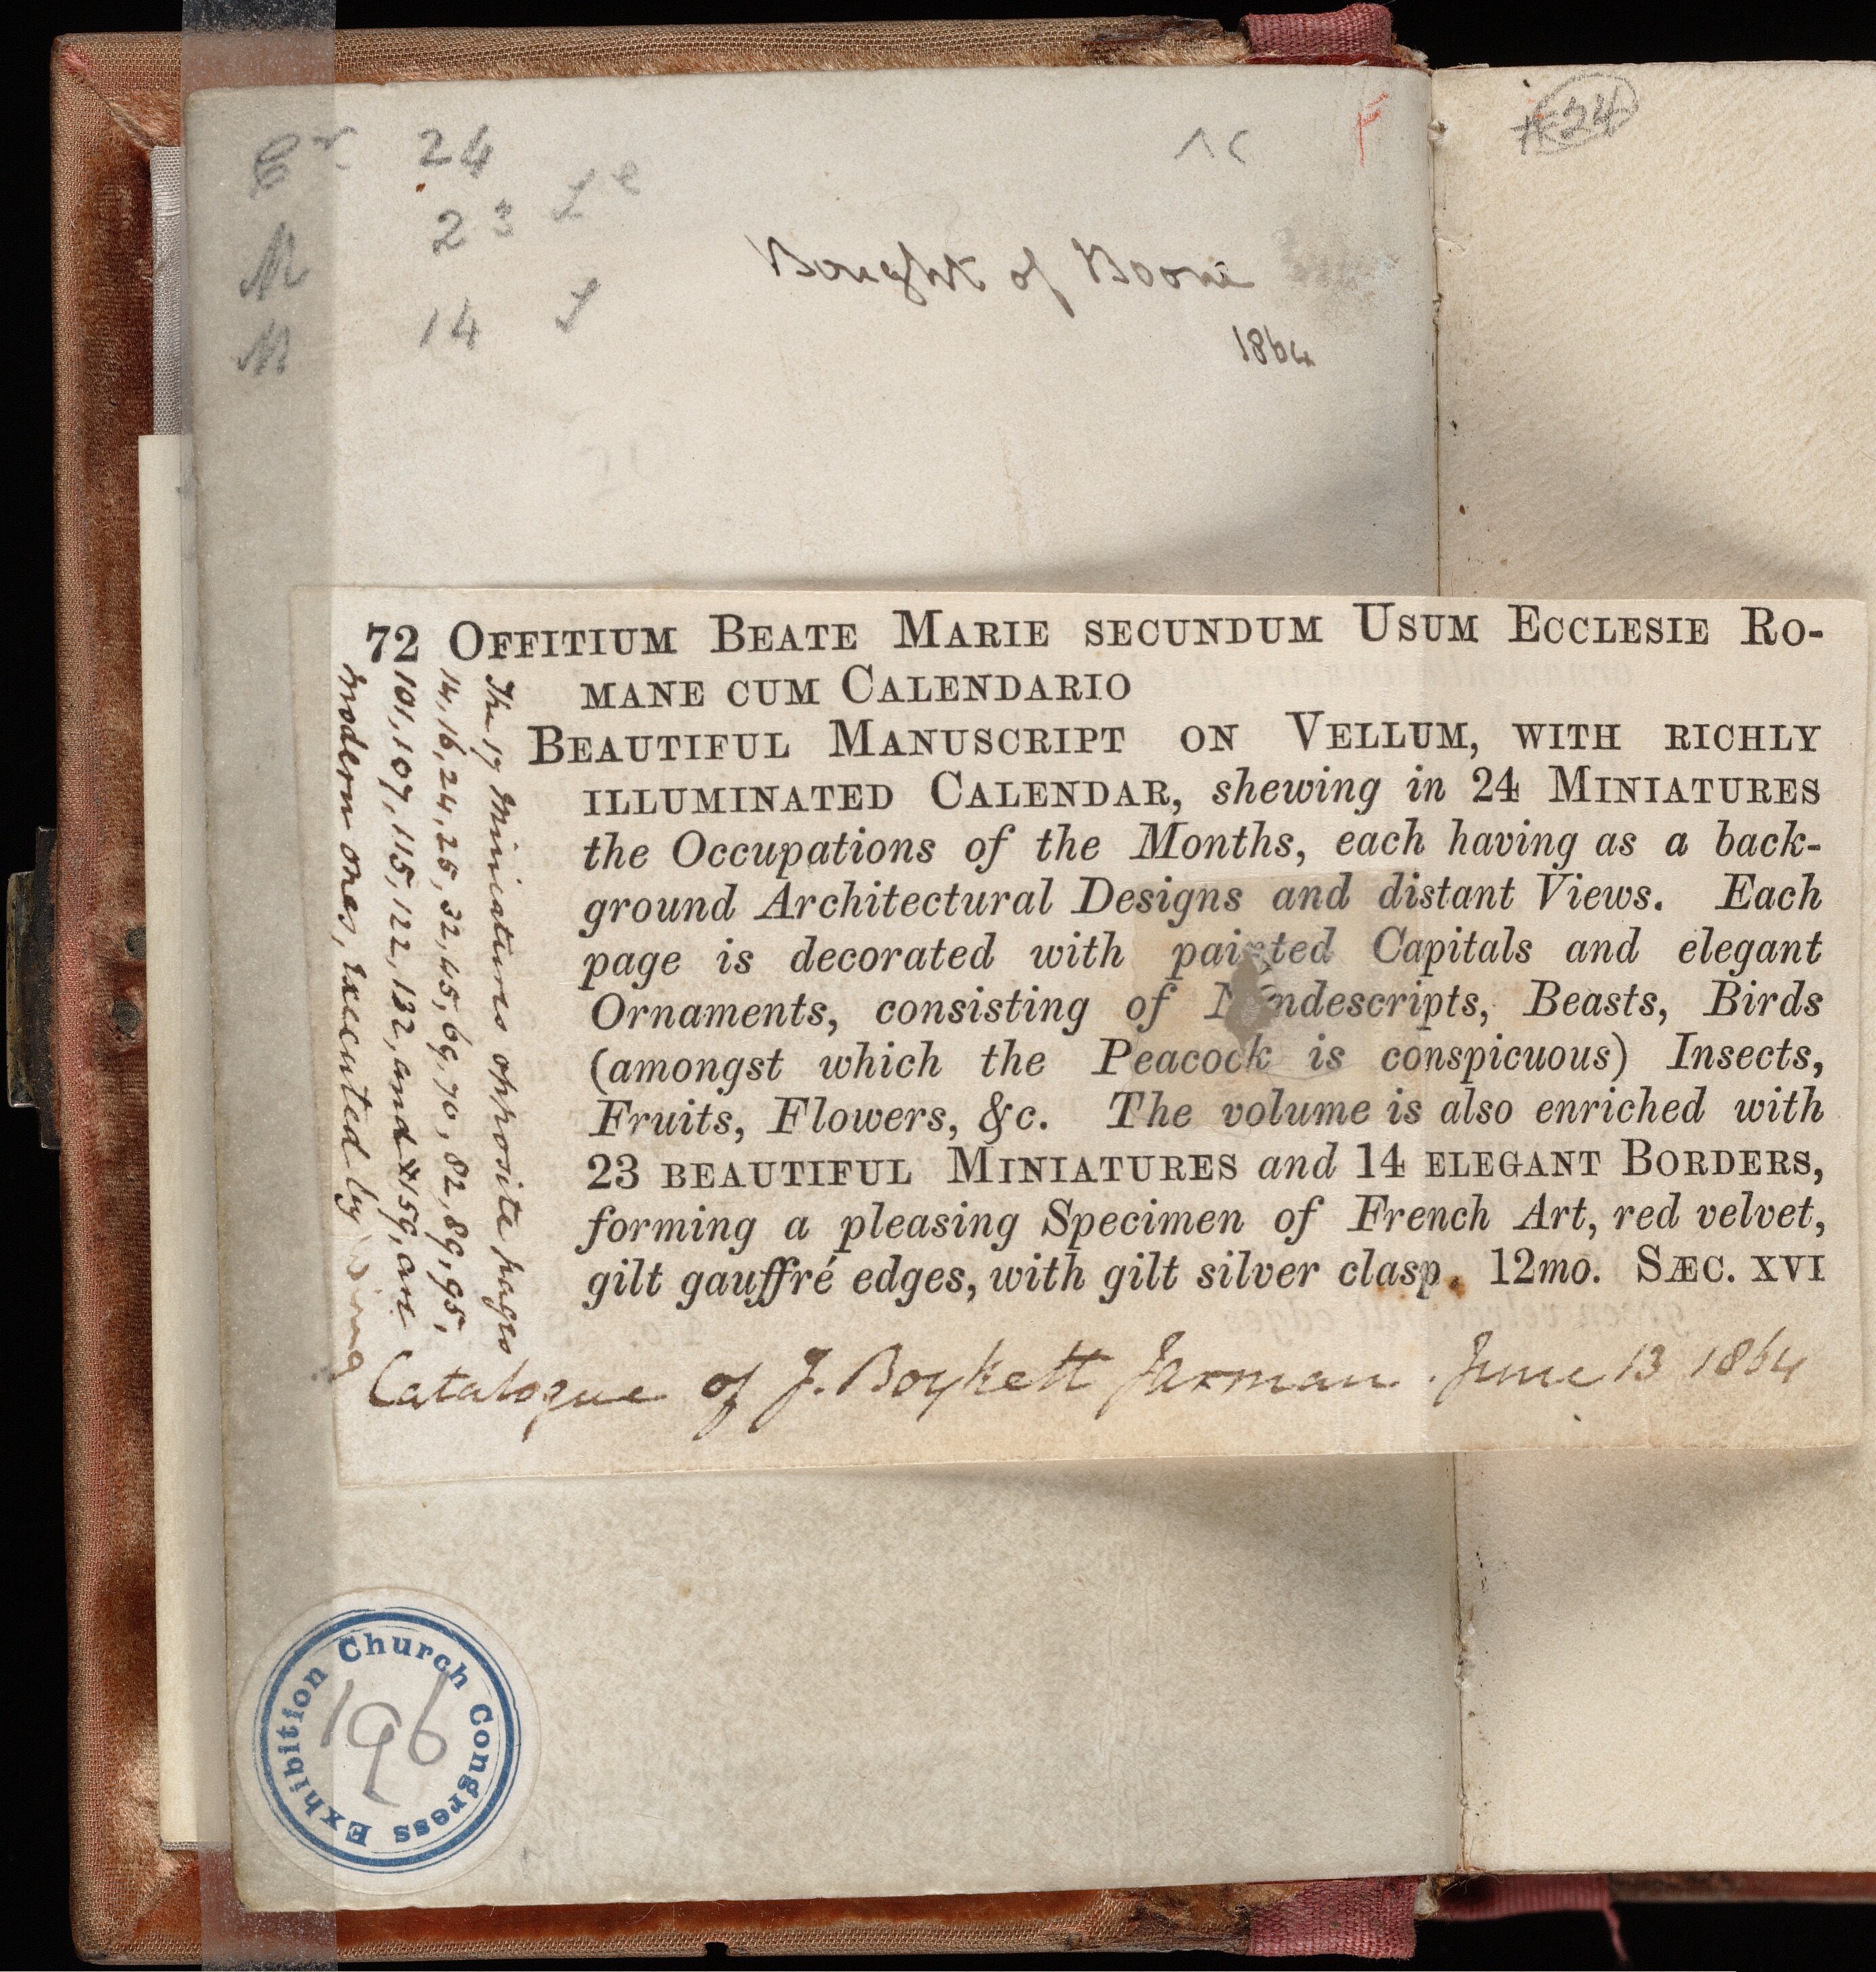 24
23 Le
M
14 L
M
F
Bought of Boone
1864
24
72 OFFITIUM BEATE MARIE SECUNDUM USUM ECCLESIE RO-
MANE CUM CALENDARIO
BEAUTIFUL MANUSCRIPT ON VELLUM, WITH RICHLY
ILLUMINATED CALENDAR, shewing in 24 MINIATURES
the Occupations of the Months, each having as a back-
ground Architectural Designs and distant Views. Each
page is decorated with painted Capitals and elegant
Ornaments, consisting of Nondescripts, Beasts, Birds
(amongst which the Peacock is conspicuous) Insects,
Fruits, Flowers, &c. The volume is also enriched with
23 BEAUTIFUL MINIATURES and 14 ELEGANT BORDERS,
forming a pleasing Specimen of French Art, red velvet,
gilt gauffré edges, with gilt silver clasp. 12mo. SÆC. XVI
The 17 Miniatures opposite pages
14, 16, 24, 25, 32, 45, 69, 70, 82, 89, 95,
101, 107, 115, 122, 132, and *159, are
modern ones, executed by
Catalogue of J. Boykett Jarman. June 13 1864
Church Congress Exhibition
196